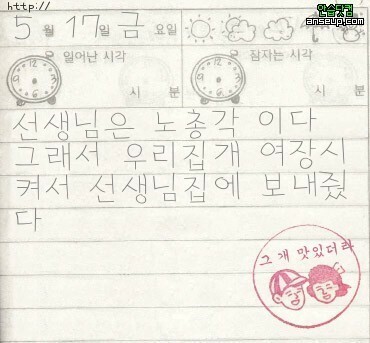 http://
안습닷컴
anseup.com
5 월 17일 금 요일
일어난 시각
잠자는 시각
시 분
시 분
선생님은 노총각 이다
그래서 우리집개 여장시
켜서 선생님집에 보내줬
다
그 개 맛있더라